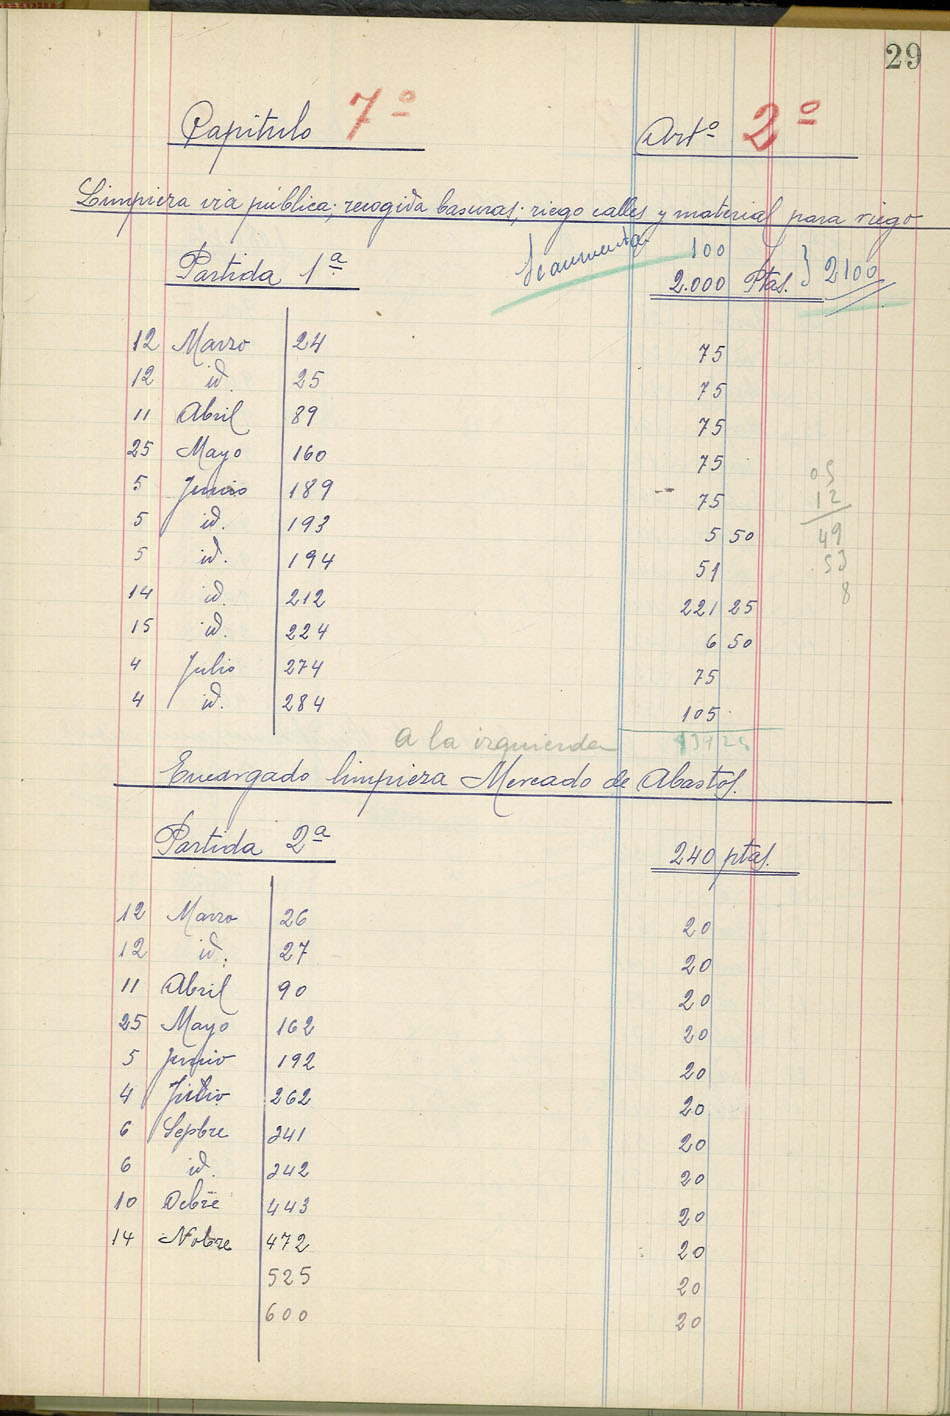 29
Capítulo 7º Artº 2º
Limpieza via pública; recogida basuras; riego calles y material para riego
Se aumenta 100
Partida 1ª 2.000 Ptas. } 2100
12 Marzo 24 75
12 id. 25 75
11 Abril 89 75
25 Mayo 160 75
5 Junio 189 75
5 id. 193 5 50
5 id. 194 51
14 id. 212 221 25
15 id. 224 6 50
4 Julio 274 75
4 id. 284 105
05
12
49
53
8
a la izquierda
Encargado limpieza Mercado de Abastos.
Partida 2ª 240 ptas.
12 Marzo 26 20
12 id. 27 20
11 Abril 90 20
25 Mayo 162 20
5 Junio 192 20
4 Julio 262 20
6 Sepbre 341 20
6 id. 342 20
10 Ocbre 443 20
14 Nobre 472 20
525 20
600 20